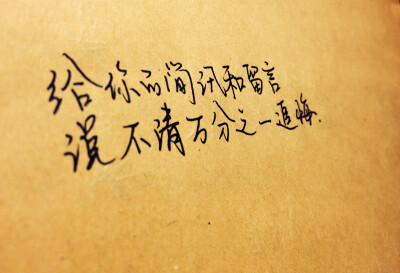 给你的简讯和留言
说不清万分之一追悔.